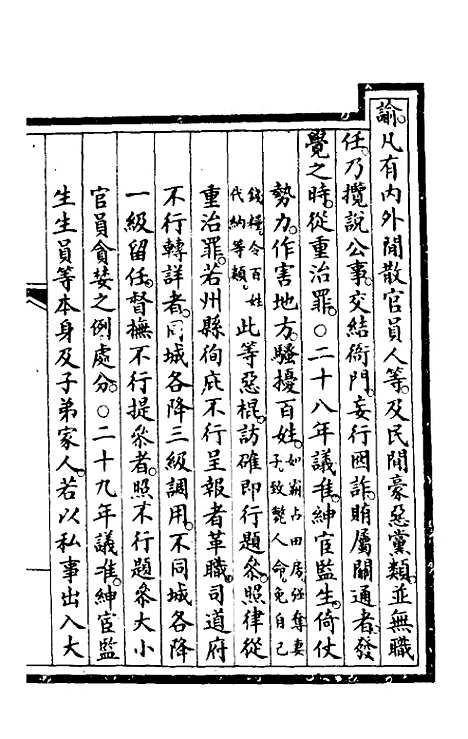 諭。凡有內外閒散官員人等。及民間豪惡黨類。並無職
任。乃攬說公事。交結衙門。妄行囮詐。賄屬關通者。發
覺之時。從重治罪。○二十八年議准。紳官監生。倚仗
勢力。作害地方。騷擾百姓。如霸占田房。強奪妻子。致斃人命。免自己錢糧。令百姓代納等類。此等惡棍。訪確即行題參。照律從
重治罪。若州縣徇庇不行呈報者革職。司道府
不行轉詳者。同城各降三級調用。不同城各降
一級留任。督撫不行提參者。照不行題參大小
官員貪婪之例處分。○二十九年議准。紳官監
生生員等本身及子弟家人。若以私事出入大